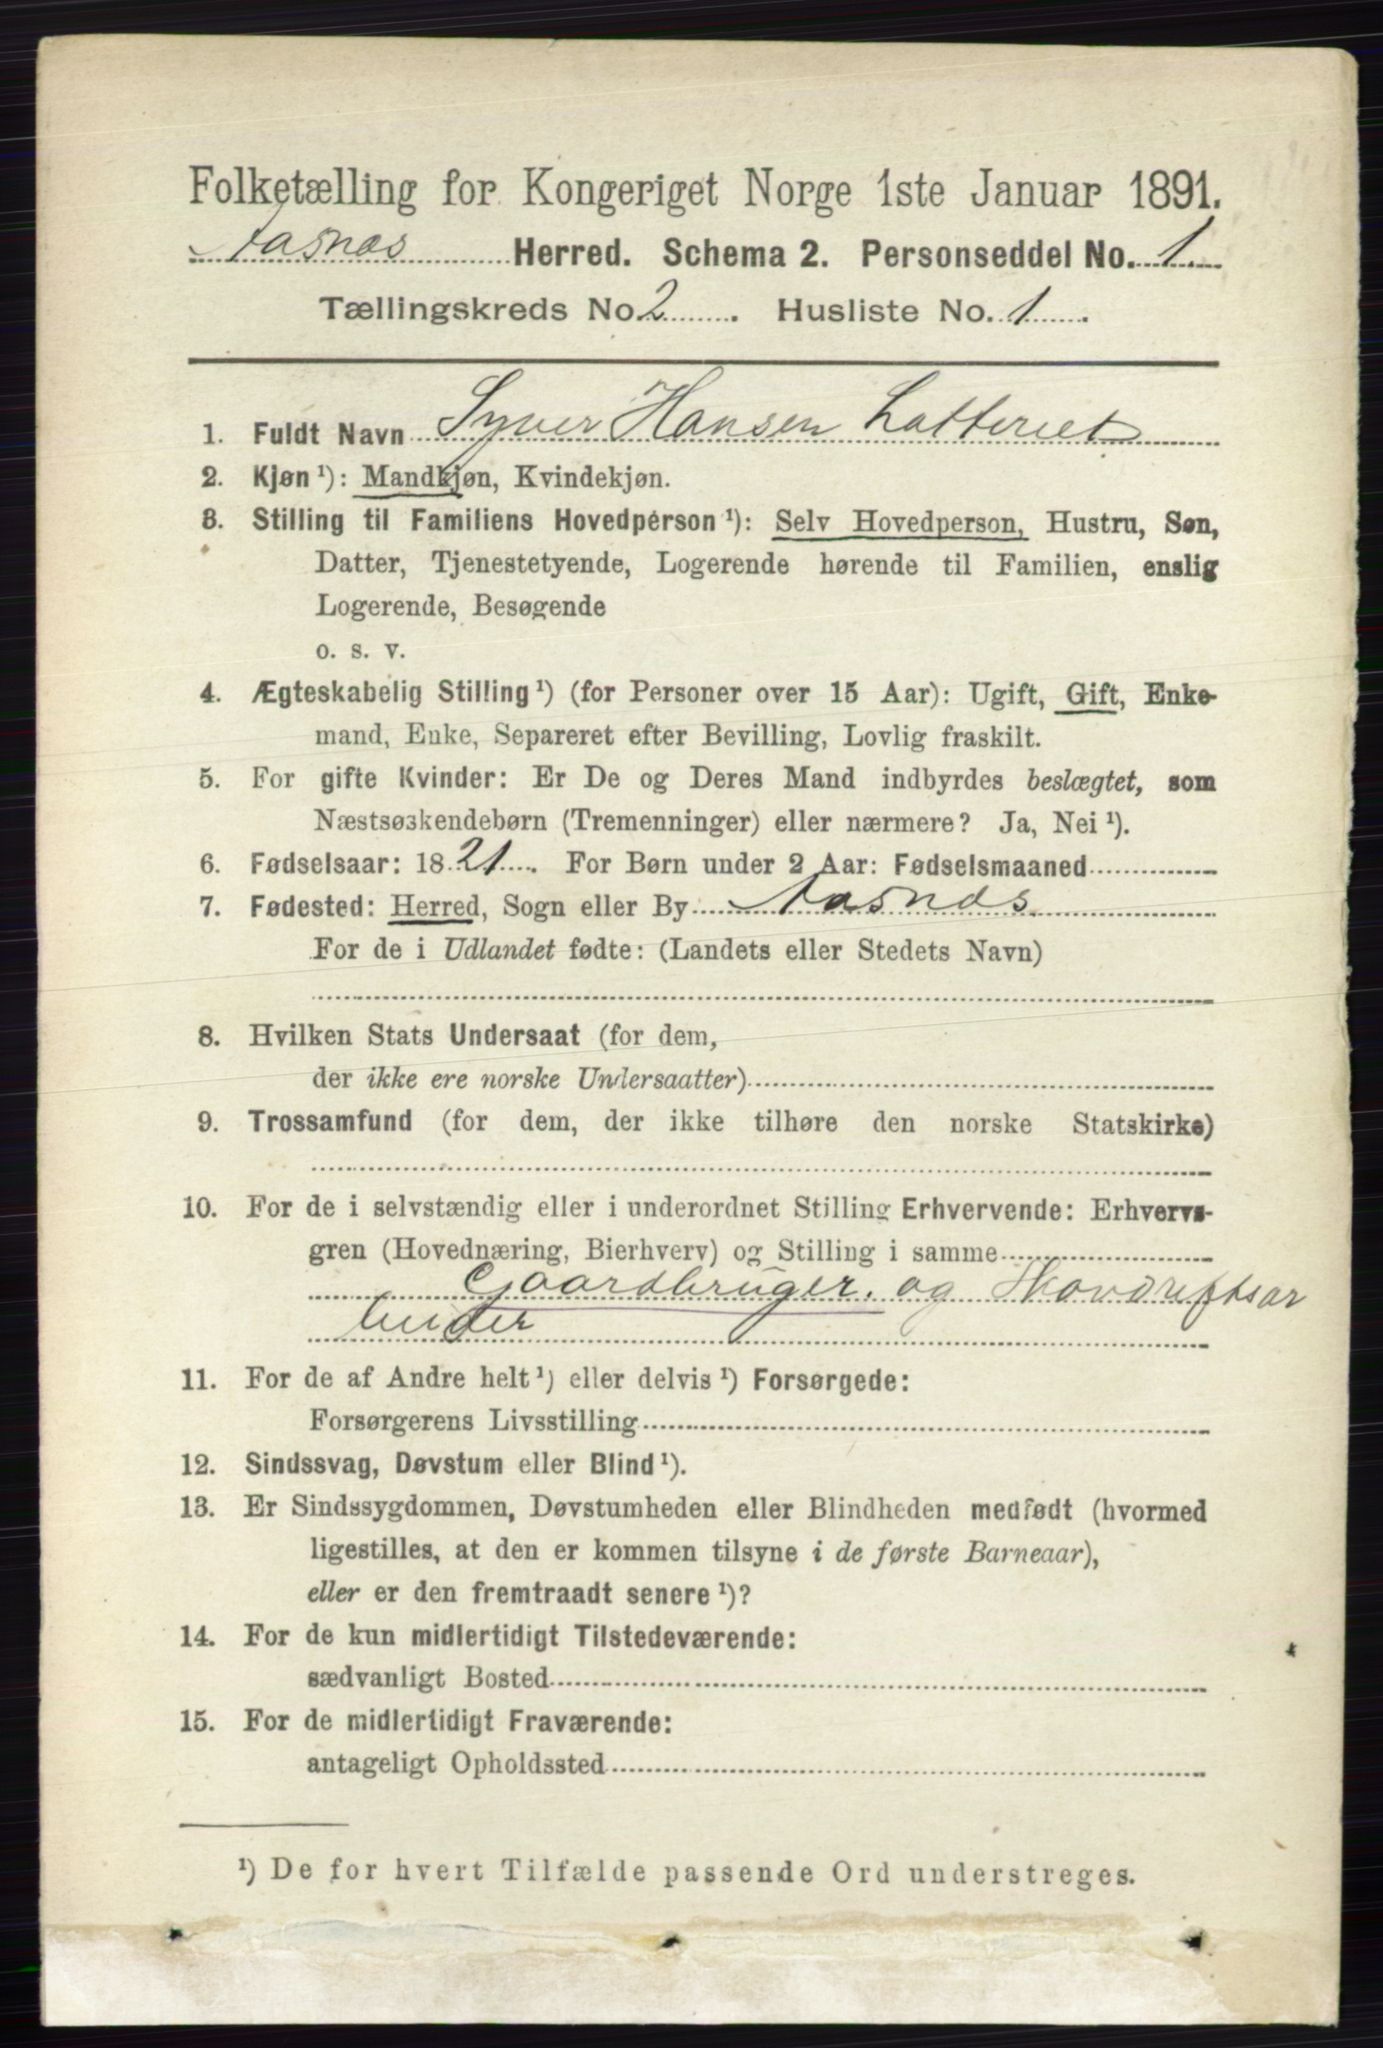 Folketælling for Kongeriget Norge 1ste Januar 1891.
Aasnæs Herred. Schema 2. Personseddel No. 1
Tællingskreds No. 2. Husliste No. 1.
1. Fuldt Navn Syver Hansen Latteriet
2. Kjøn ¹): Mandkjøn, Kvindekjøn.
3. Stilling til Familiens Hovedperson ¹): Selv Hovedperson, Hustru, Søn,
Datter, Tjenestetyende, Logerende hørende til Familien, enslig
Logerende, Besøgende
o. s. v.
4. Ægteskabelig Stilling ¹) (for Personer over 15 Aar): Ugift, Gift, Enke-
mand, Enke, Separeret efter Bevilling, Lovlig fraskilt.
5. For gifte Kvinder: Er De og Deres Mand indbyrdes beslægtet, som
Næstsøskendebørn (Tremenninger) eller nærmere? Ja, Nei ¹).
6. Fødselsaar: 1821. For Børn under 2 Aar: Fødselsmaaned
7. Fødested: Herred, Sogn eller By Aasnæs
For de i Udlandet fødte: (Landets eller Stedets Navn)
8. Hvilken Stats Undersaat (for dem,
der ikke ere norske Undersaatter)
9. Trossamfund (for dem, der ikke tilhøre den norske Statskirke)
10. For de i selvstændig eller i underordnet Stilling Erhvervende: Erhvervs-
gren (Hovednæring, Bierhverv) og Stilling i samme
Gaardbruger. og Skovdriftsar
beider
11. For de af Andre helt ¹) eller delvis ¹) Forsørgede:
Forsørgerens Livsstilling
12. Sindssvag, Døvstum eller Blind ¹).
13. Er Sindssygdommen, Døvstumheden eller Blindheden medfødt (hvormed
ligestilles, at den er kommen tilsyne i de første Barneaar),
eller er den fremtraadt senere ¹)?
14. For de kun midlertidigt Tilstedeværende:
sædvanligt Bosted
15. For de midlertidigt Fraværende:
antageligt Opholdssted
¹) De for hvert Tilfælde passende Ord understreges.